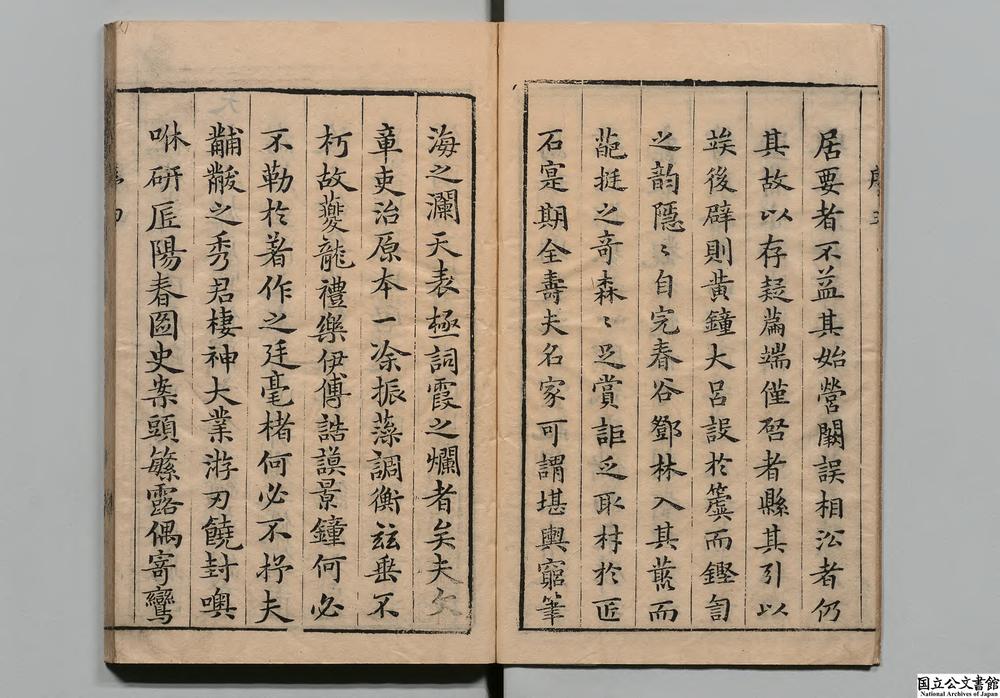 居要者不益其始營闕誤相沿者仍
其故以存疑篇端僅啓者縣其引以
竢後辟則黃鐘大呂設於簨而鏗訇
之韵隱〻自完春谷鄧林入其叢而
葩挺之奇森〻足賞詎乏取材於匠
石寔期全壽夫名家可謂堪輿窮筆
海之瀾天表極詞霞之爛者矣夫
章吏治原本一凃振藻調衡玆垂不
朽故夔龍禮樂伊傅誥謨景鐘何必
不勒於著作之廷毫楮何必不抒夫
黼黻之秀君棲神大業游刃饒封噢
咻研匠陽春圖史案頭繁露偶寄鸞
国立公文書館
National Archives of Japan